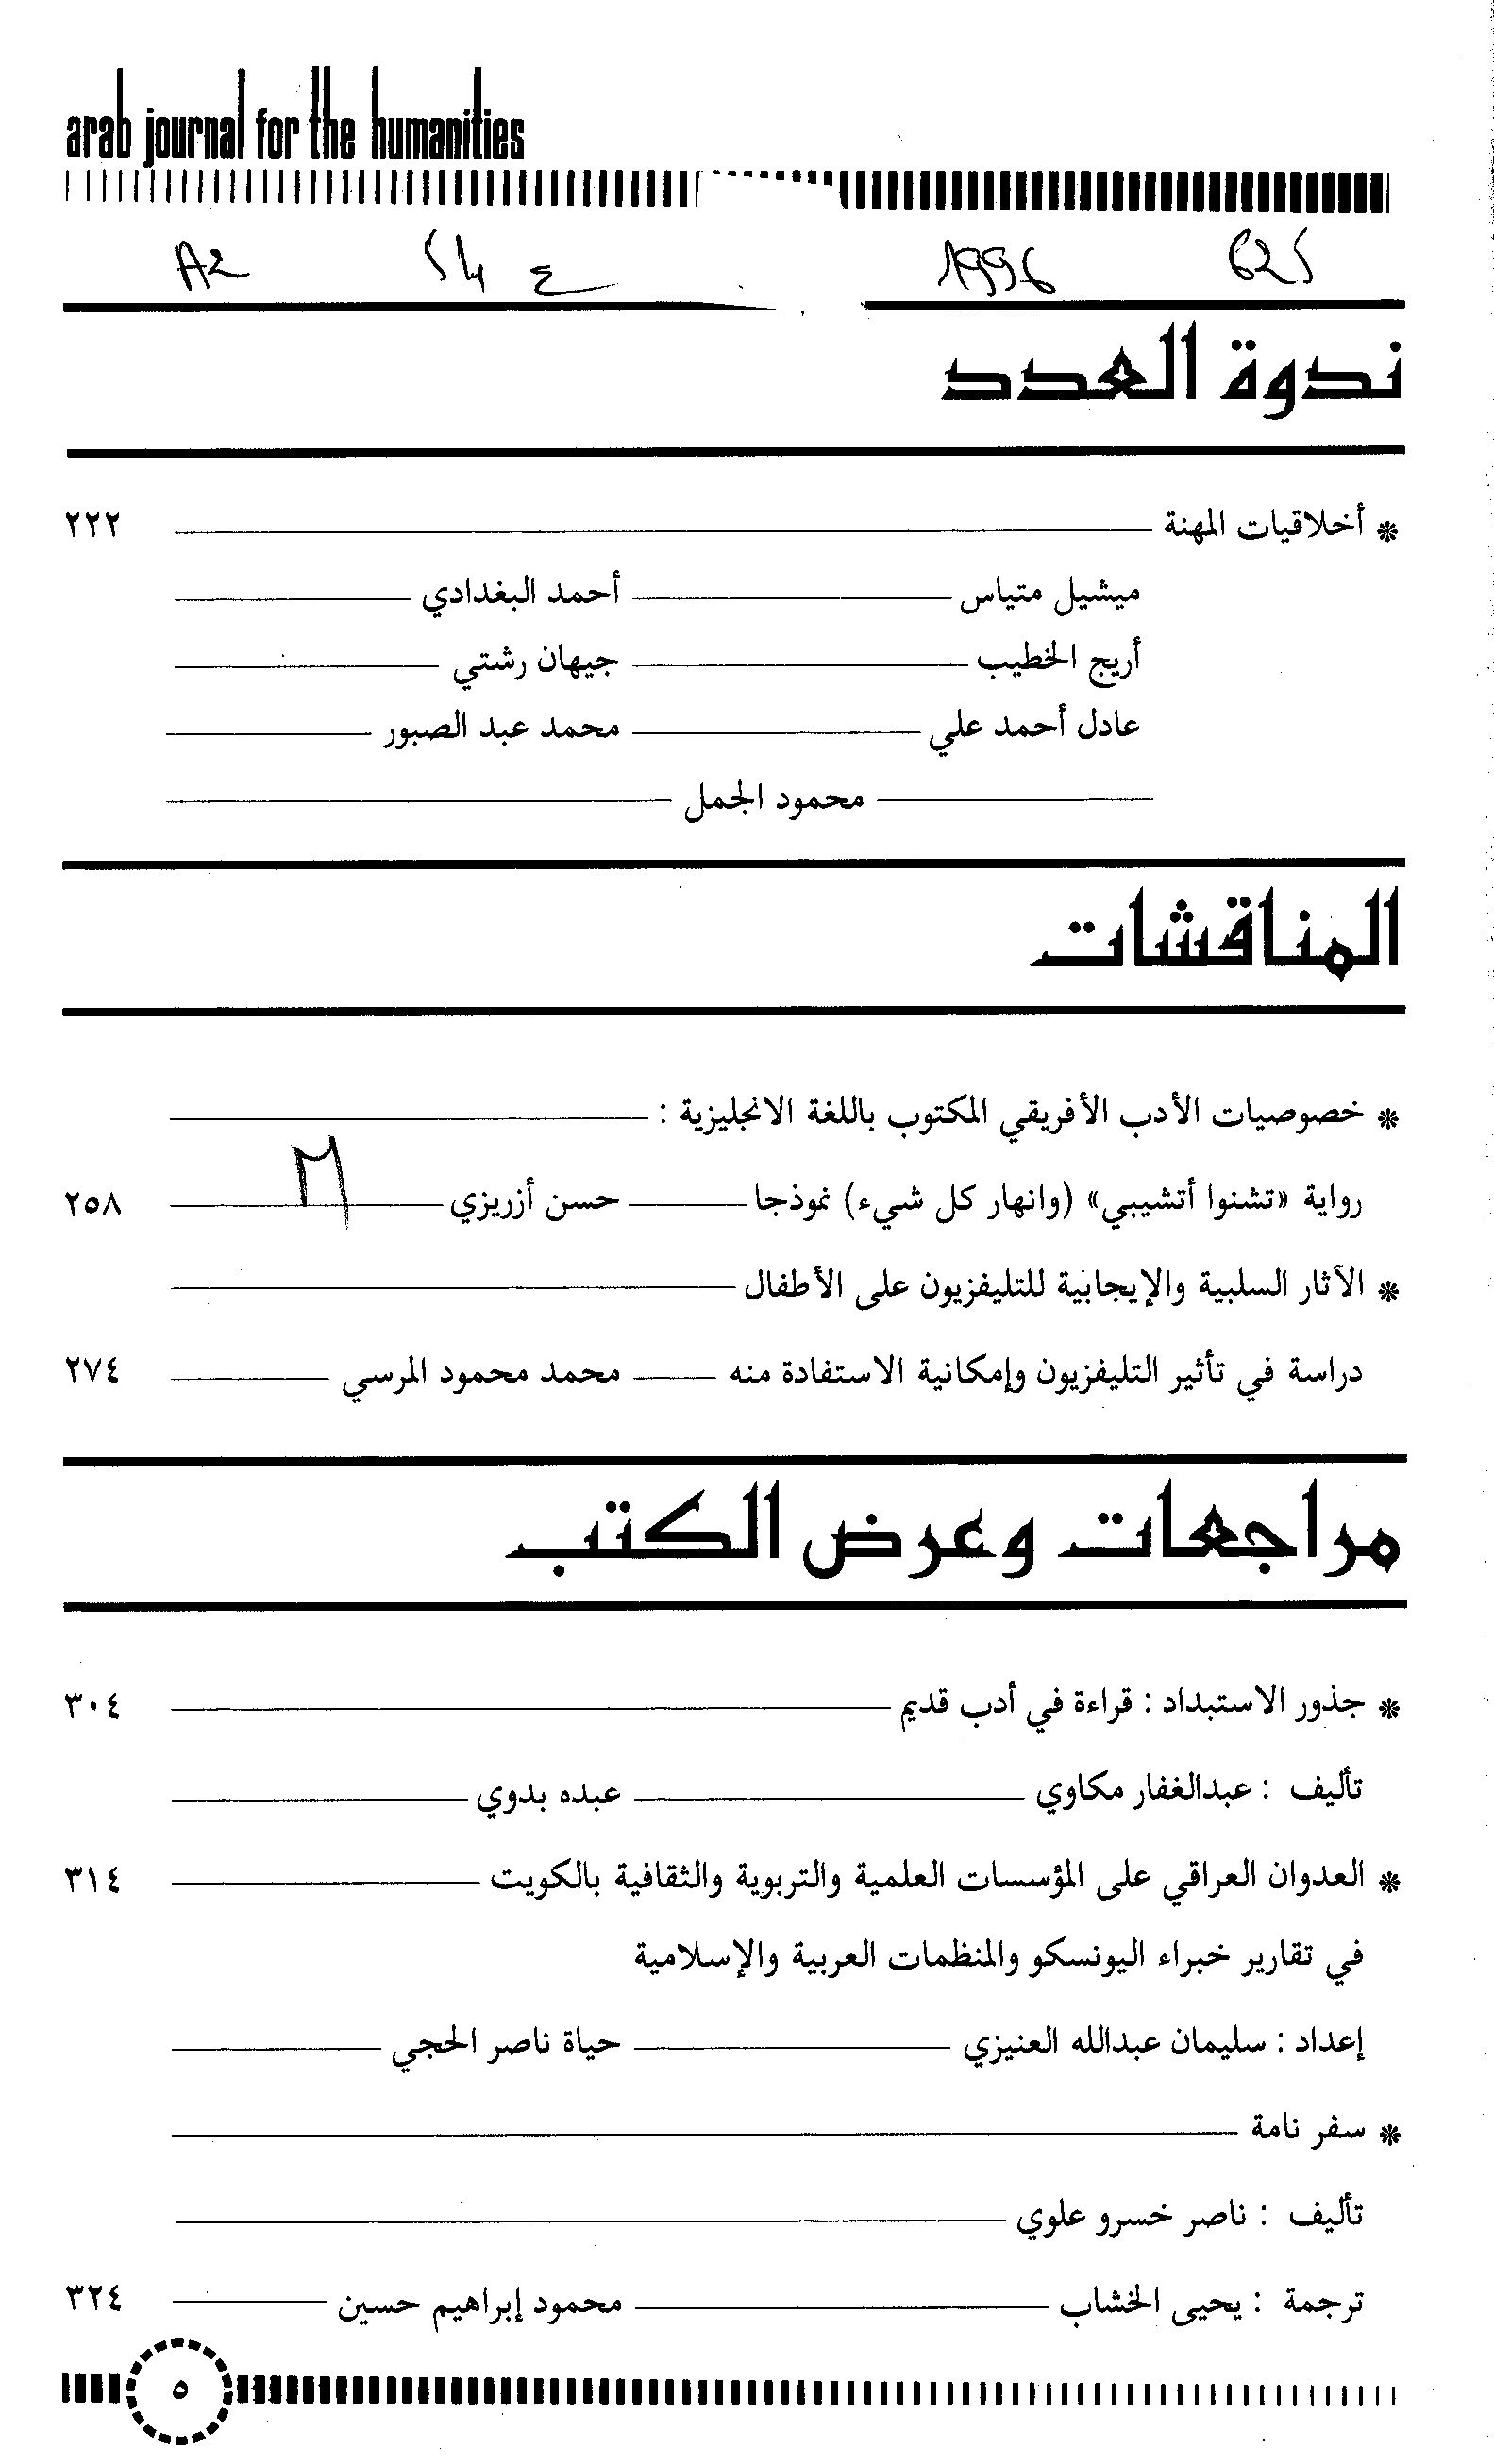 arab journal for the humanities
A2 1996
ندوة العدد
* أخلاقيات المهنة ٢٢٢
ميشيل متياس أحمد البغدادي
أريج الخطيب جيهان رشتي
عادل أحمد علي محمد عبد الصبور
محمود الجمل
المناقشات
* خصوصيات الأدب الأفريقي المكتوب باللغة الانجليزية :
رواية «تشنوا أتشيبي» (وانهار كل شيء) نموذجا حسن أزريزي ٢٥٨
* الآثار السلبية والإيجابية للتليفزيون على الأطفال
دراسة في تأثير التليفزيون وإمكانية الاستفادة منه محمد محمود المرسي ٢٧٤
مراجعات وعرض الكتب
* جذور الاستبداد : قراءة في أدب قديم ٣٠٤
تأليف : عبدالغفار مكاوي عبده بدوي
* العدوان العراقي على المؤسسات العلمية والتربوية والثقافية بالكويت ٣١٤
في تقارير خبراء اليونسكو والمنظمات العربية والإسلامية
إعداد : سليمان عبدالله العنيزي حياة ناصر الحجي
* سفر نامة
تأليف : ناصر خسرو علوي
ترجمة : يحيى الخشاب محمود إبراهيم حسين ٣٢٤
٥